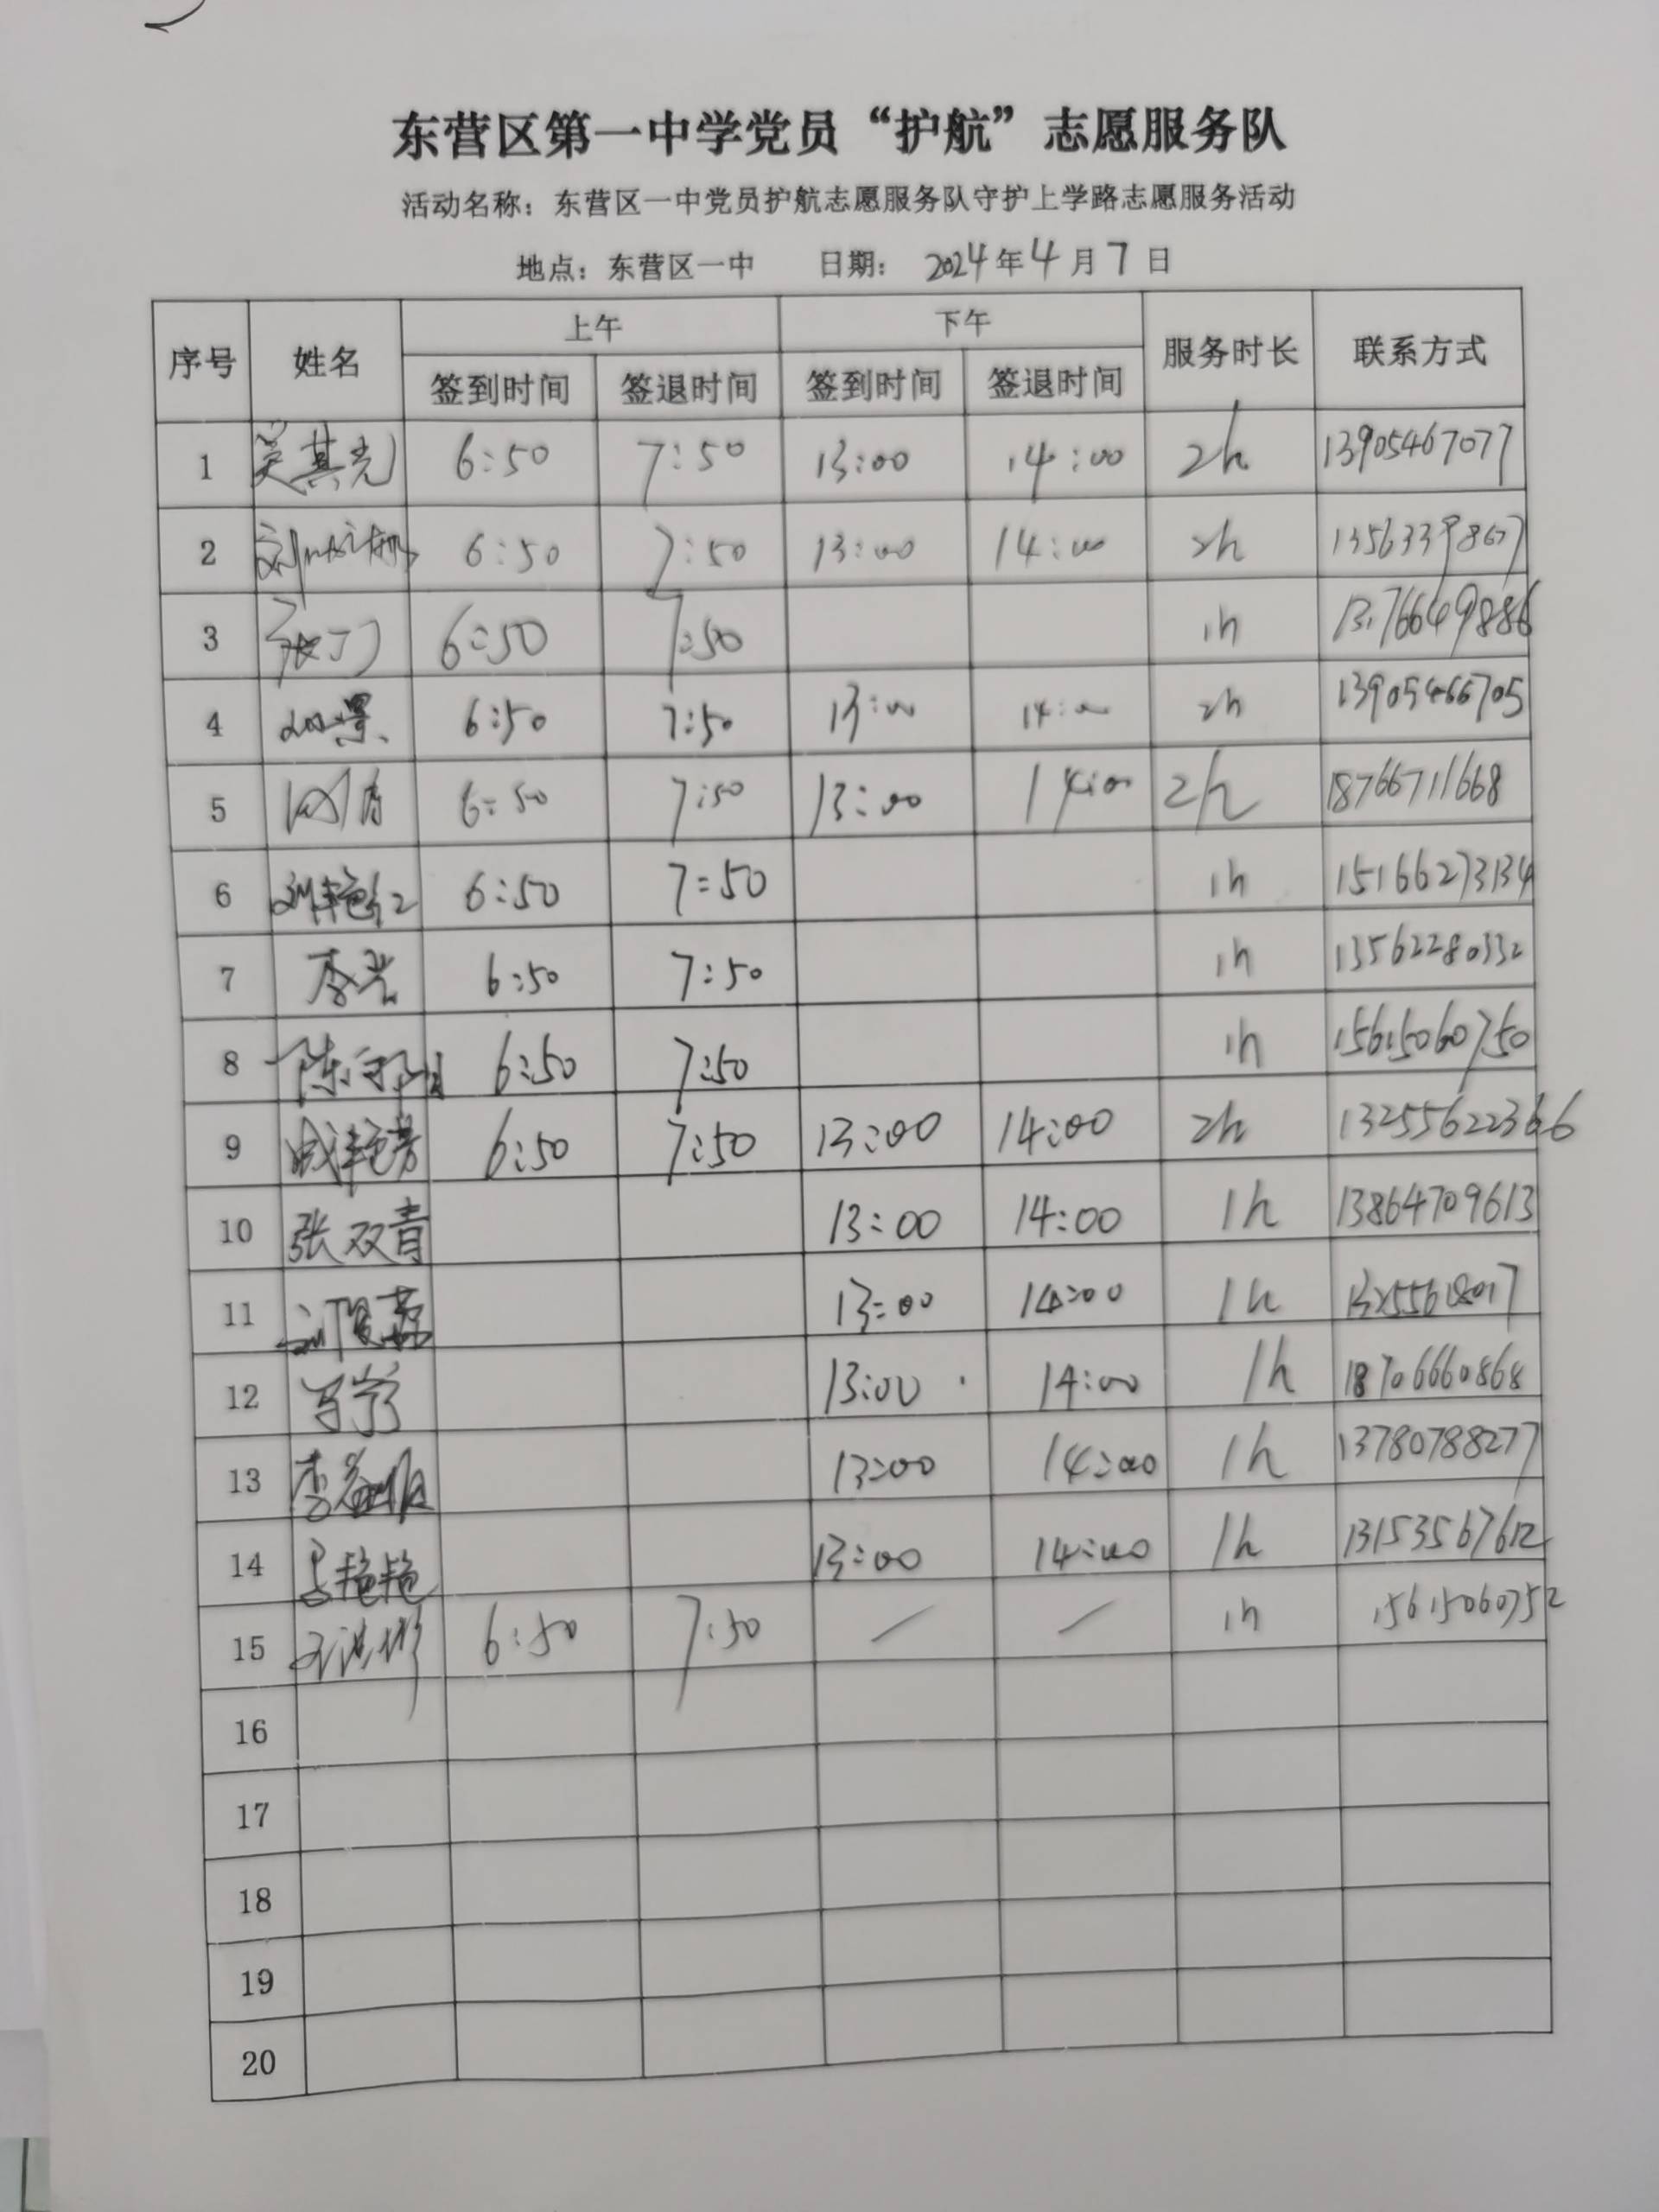 东营区第一中学党员“护航”志愿服务队
活动名称：东营区一中党员护航志愿服务队守护上学路志愿服务活动
地点：东营区一中 日期： 2024年4月7日
序号 姓名 上午 下午 服务时长 联系方式
签到时间 签退时间 签到时间 签退时间
1 吴其光 6:50 7:50 13:00 14:00 2h 13905467077
2 6:50 7:50 13:00 14:00 2h
3 6:50 7:50 1h 13176649886
4 6:50 7:50 13:00 14:00 2h 13905466705
5 6:50 7:50 13:00 14:00 2h 18766711668
6 刘艳红 6:50 7:50 1h 15166273134
7 6:50 7:50 1h 13562280332
8 6:50 7:50 1h 15615060750
9 成艳芳 6:50 7:50 13:00 14:00 2h 13255622366
10 张双青 13:00 14:00 1h 13864709613
11 13:00 14:00 1h
12 13:00 14:00 1h 18706660868
13 13:00 14:00 1h 13780788277
14 13:00 14:00 1h 13153567612
15 6:50 7:50 / / 1h 15615060752
16
17
18
19
20